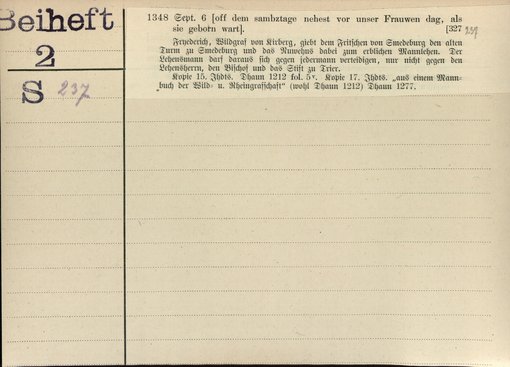 Beiheft
2
S 237
1348 Sept. 6 [off dem sambztage nehest vor unser Frauwen dag, als
sie geborn wart]. [327 237
Fryederich, Wildgraf von Kirberg, giebt dem Fritschen von Smedeburg den alten
Turm zu Smedeburg und das Nuwehus dabei zum erblichen Mannlehen. Der
Lehensmann darf daraus sich gegen jedermann verteidigen, nur nicht gegen den
Lehensherrn, den Bischof und das Stift zu Trier.
Kopie 15. Jhdts. Dhaun 1212 fol. 5v. Kopie 17. Jhdts. „aus einem Mann-
buch der Wild- u. Rheingrafschaft“ (wohl Dhaun 1212) Dhaun 1277.